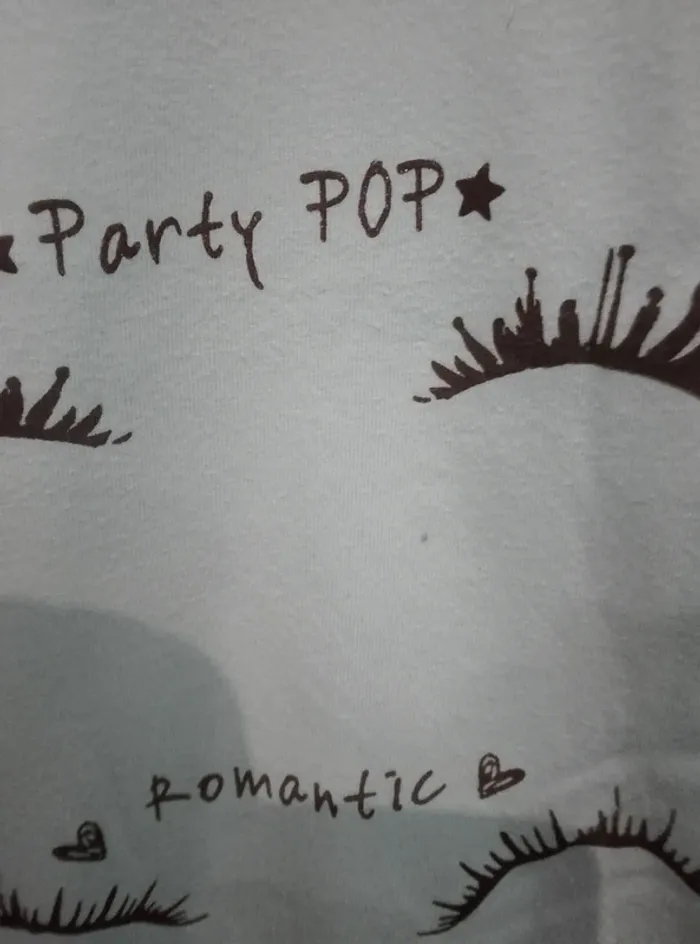 Party POP
Romantic